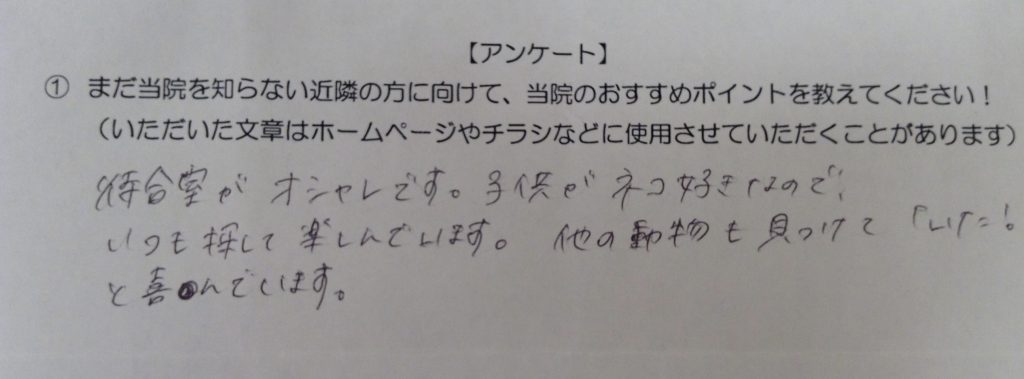 【アンケート】
① まだ当院を知らない近隣の方に向けて、当院のおすすめポイントを教えてください!
(いただいた文章はホームページやチラシなどに使用させていただくことがあります)
待合室が オシャレです。子供が ネコ好きなので、
いつも探して楽しんでいます。 他の動物も見つけて「いた!
と喜んでいます。